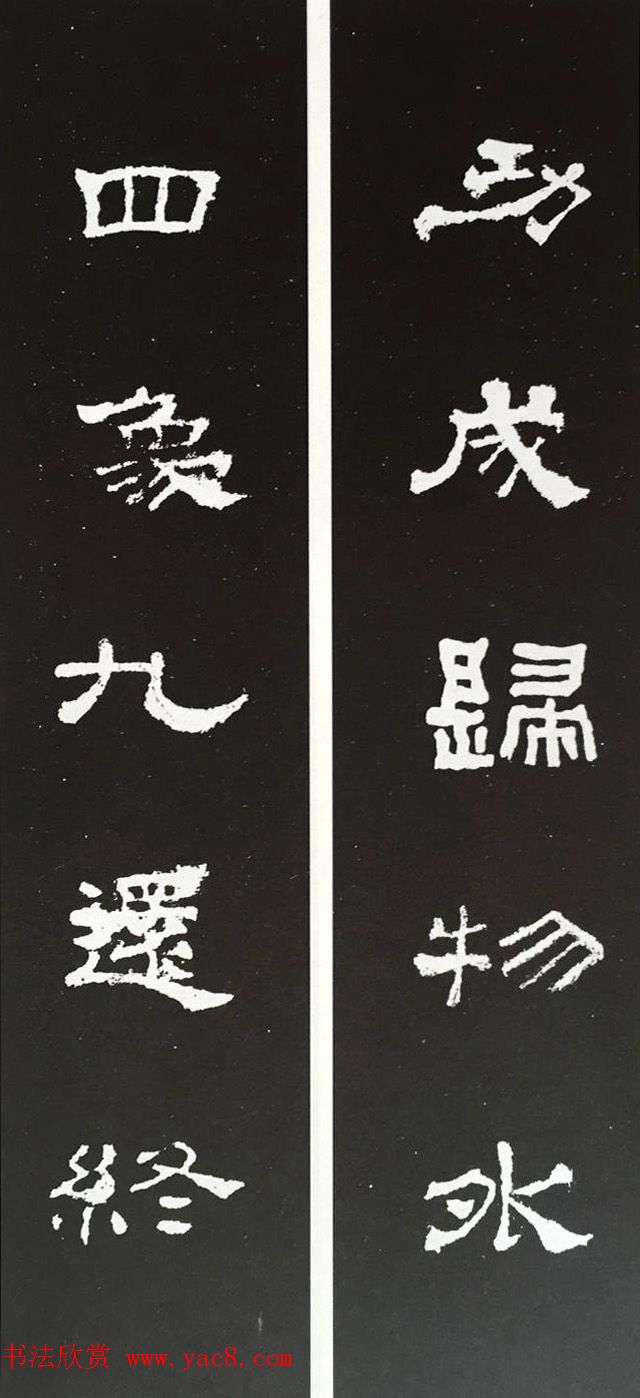 功成歸物外
四象九還終
书法欣赏 www.yac8.com